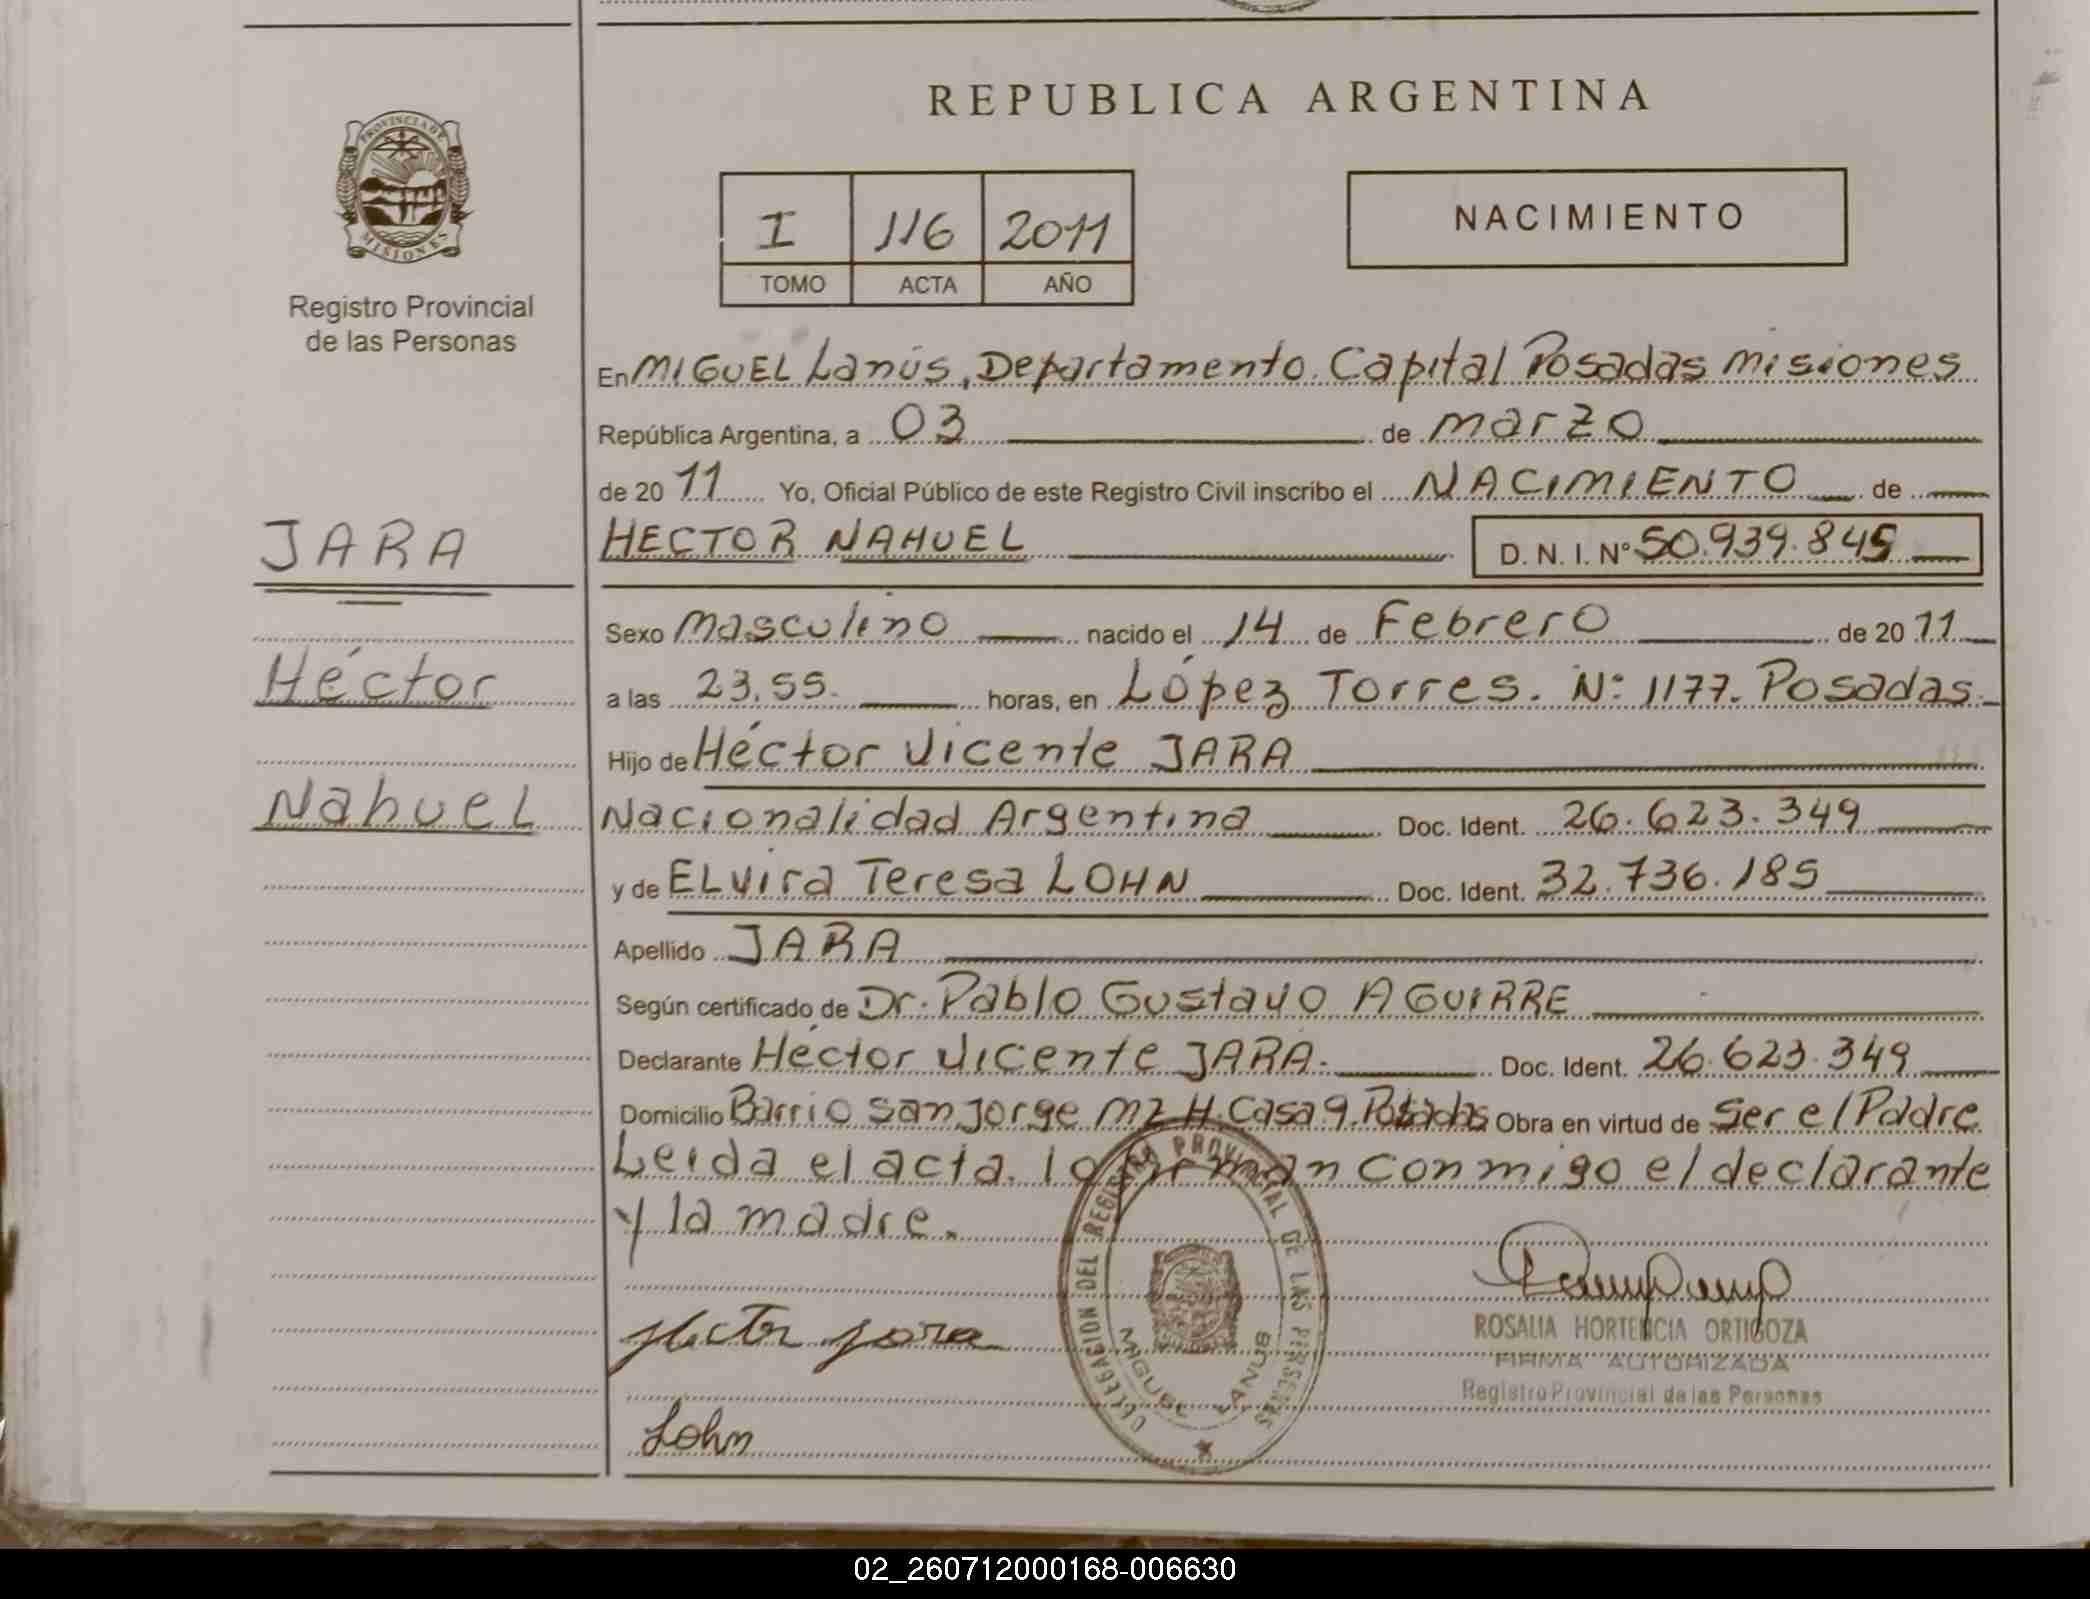 REPUBLICA ARGENTINA
PROVINCIA DE
MISIONES
Registro Provincial
de las Personas
I 116 2011
TOMO ACTA AÑO
NACIMIENTO
En MIGUEL Lanús, Departamento Capital Posadas Misiones
República Argentina, a 03 de marzo
de 2011 Yo, Oficial Público de este Registro Civil inscribo el NACIMIENTO de
JARA
HECTOR NAHUEL D. N. I. Nº 50.939.845
Sexo Masculino nacido el 14 de Febrero de 2011
Héctor
a las 23.55. horas, en López Torres. Nº 1177. Posadas.
Hijo de Héctor Vicente JARA
Nahuel
Nacionalidad Argentina Doc. Ident. 26.623.349
y de Elvira Teresa LOHN Doc. Ident. 32.736.185
Apellido JARA
Según certificado de Dr. Pablo Gustavo AGUIRRE
Declarante Héctor Vicente JARA. Doc. Ident. 26.623.349
Domicilio Barrio San Jorge Mz H. Casa 9. Posadas Obra en virtud de Ser el Padre
Leida el acta. la firman conmigo el declarante
y la madre.
DELEGACION DEL REGISTRO PROVINCIAL DE LAS PERSONAS
MIGUEL LANUS
Hector Jara
ROSALIA HORTENCIA ORTIGOZA
FIRMA AUTORIZADA
Registro Provincial de las Personas
Lohn
02_260712000168-006630